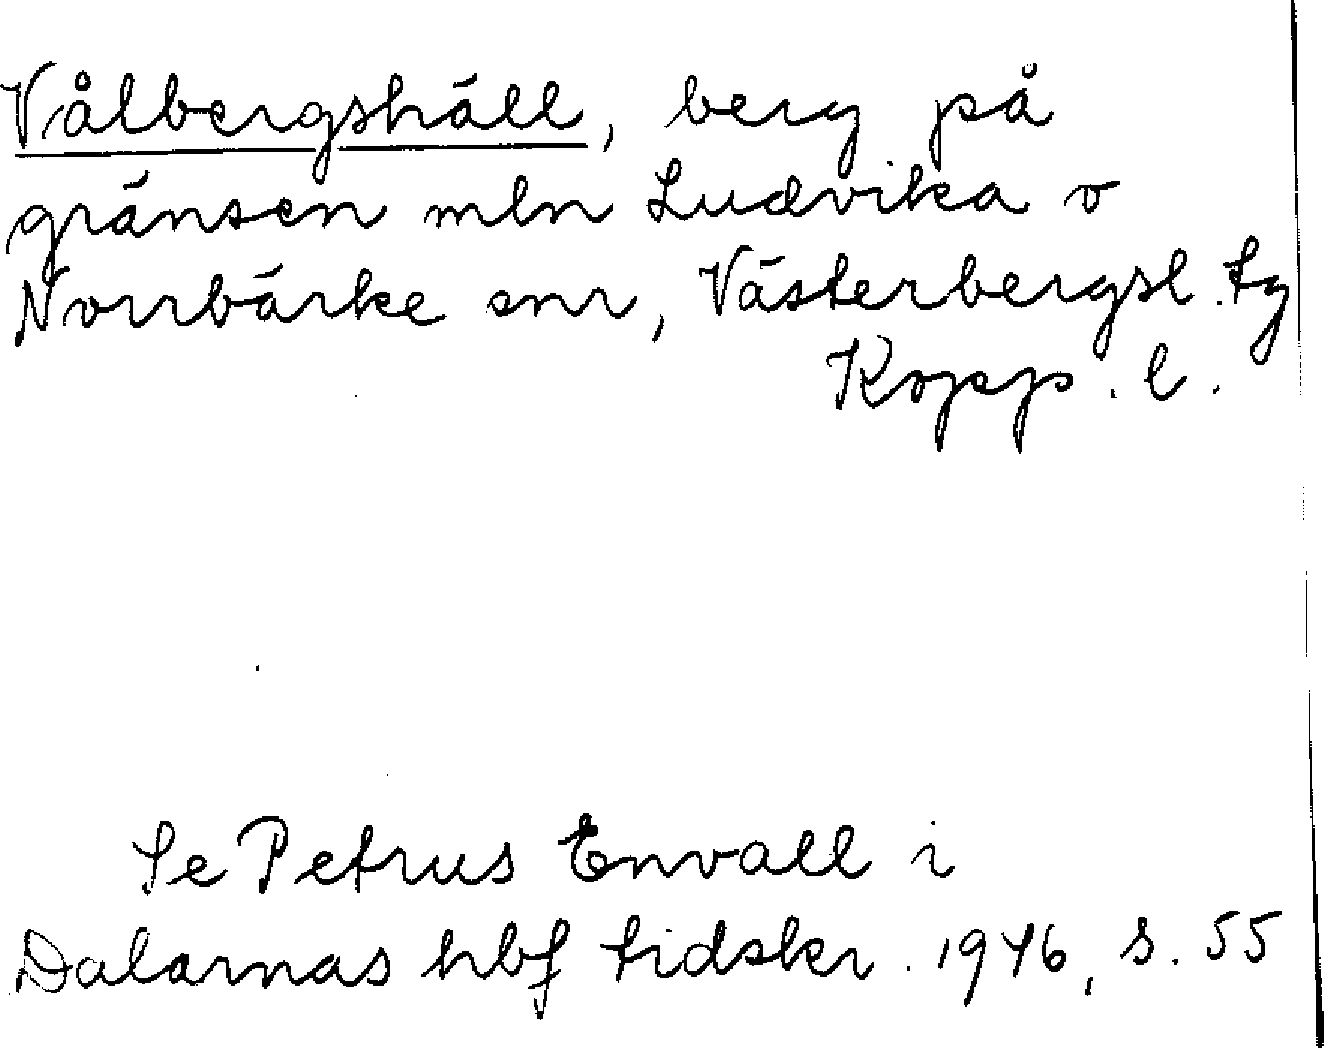 Vålbergshäll, berg på
gränsen mln Ludvika o
Norrbärke snr, Västerbergsl. tg
Kopp. l.
Se Petrus Envall i
Dalarnas hbf tidskr. 1946, s. 55